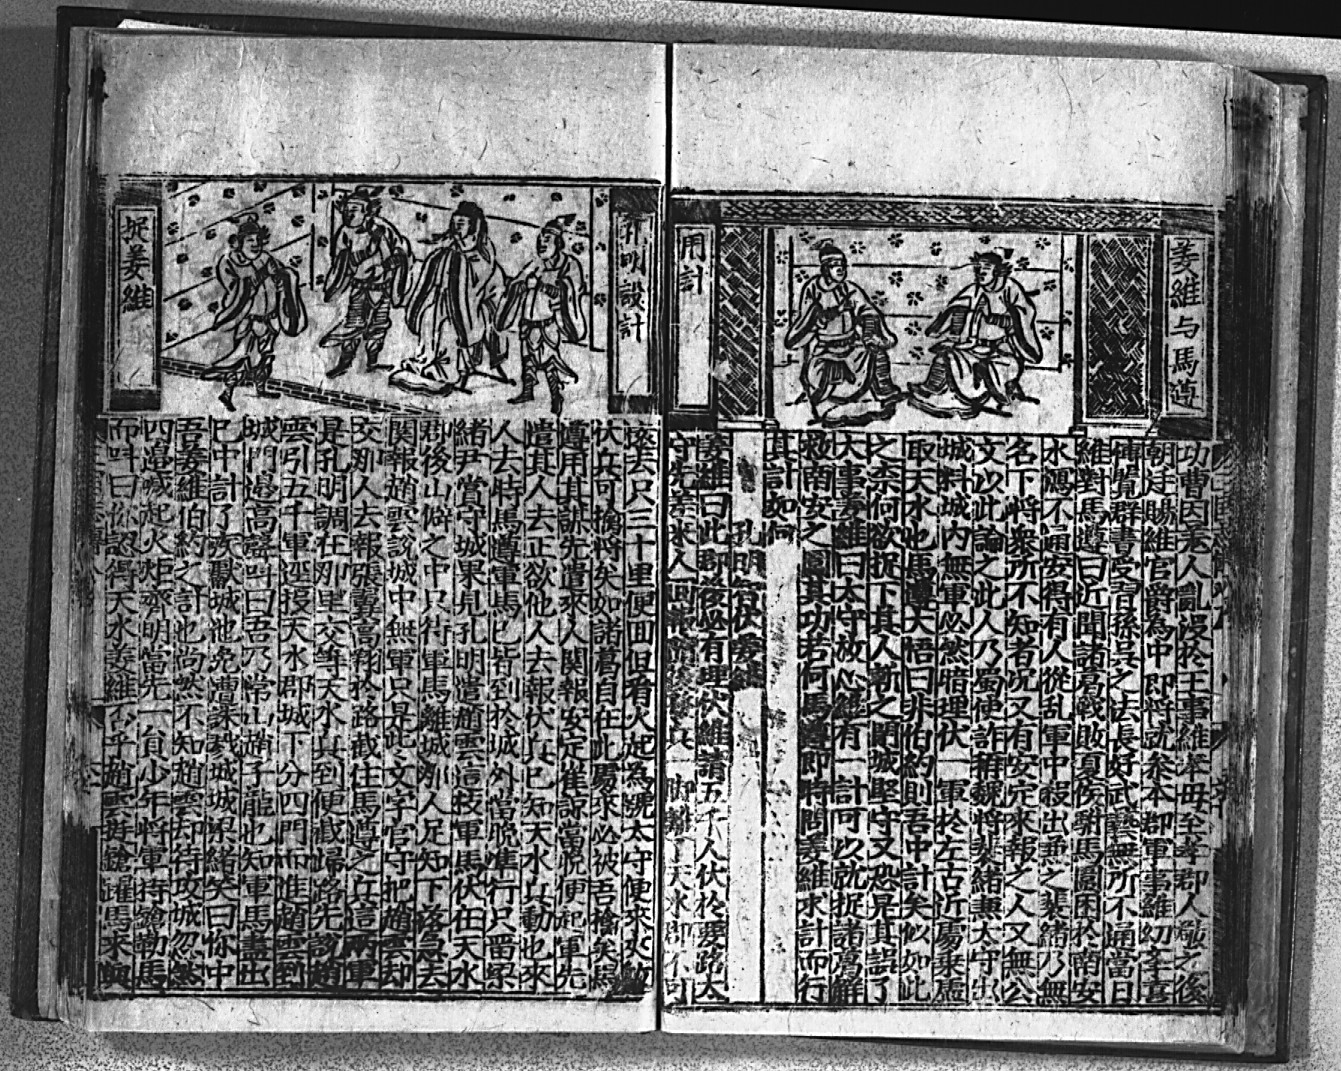 姜維与馬遵
用計
功曹因羌人亂沒於王事維奉母至孝郡人敬之後
朝廷賜維官爵為中郎將就參本郡軍事維幼年喜
博覽群書受習孫吳之法長好武藝無所不通當日
維對馬遵曰近聞諸葛戰敗夏侯駙馬圍困於南安
水洩不通安得有人從乱軍中殺出重之裴緒乃無
名下將衆所不知者况又有安定來報之人又無公
文以此論之此人乃蜀使詐稱魏將裴緒熏太守出
城料城內無軍必然暗埋伏一軍於左右近處乗虛
取天水也馬遵大悟曰非伯約則吾中計矣似如此
之柰何欲捉下其人斬之閉城堅守又恐是其誤了
大事姜維曰太守放心維有一計可以就捉諸葛觧
救南安之圍其功若何馬遵即時問姜維求計而行
其計如何
孔明智伏姜維
姜維曰此郡後必有埋伏維請五千人伏於要路太
守先差來人回報隨後發兵一御離了天水郡不可
孔明設計
捉姜維
遠去只三十里便回但看火起為號太守便來夾攻
伏兵可擒將矣如諸葛自在此處來必被吾擒矣馬
遵用其謀先遣來人関報安定崔諒當晚便起軍先
遣其人去正欲他人去報伏兵已知天水兵動也來
人去時馬遵軍馬已皆到於城外當晚準行只畱梁
緒尹賞守城果見孔明遣趙雲這枝軍馬伏在天水
郡後山僻之中只待軍馬離城剛人足知下落急去
関報趙雲說城中無軍只是此文字官守把趙雲却
交那人去報張翼高翔於路截住馬遵之兵這兩軍
是孔明調在那里交等天水兵到便截歸路先說趙
雲引五千軍逕投天水郡城下分四門而進趙雲到
城門邉高聲叫曰吾乃常山趙子龍也知軍馬盡出
已中計了疾獻城池免遭誅戮城城梁緒笑曰你中
吾姜維伯約之計也尚然不知趙雲却待攻城忽然
四邉喊起火炬齊明當先一員少年將軍持鎗勒馬
而呌曰你認得天水姜維否乎趙雲挺鎗躍馬來與